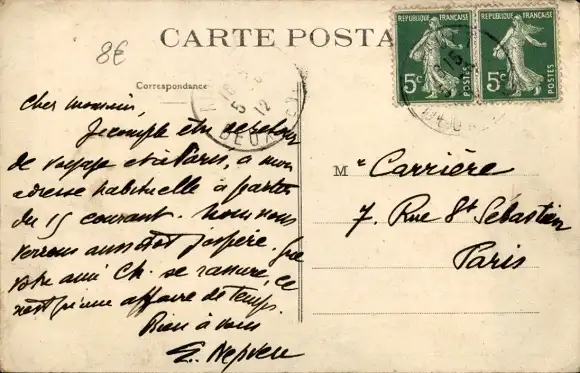 8€
CARTE POSTA
Correspondance
RÉPUBLIQUE FRANÇAISE
5c
POSTES
RÉPUBLIQUE FRANÇAISE
5c
POSTES
5
12
Cher monsieur,
Je compte être de retour
de voyage et à Paris, à mon
adresse habituelle à partir
du 15 courant. Nous nous
verrons aussitôt j'espère. Que
votre ami Ch. se rassure, ce
n'est qu'une affaire de temps.
Bien à vous
E. Nepveu
Mr Carrière
7. Rue St Sébastien
Paris